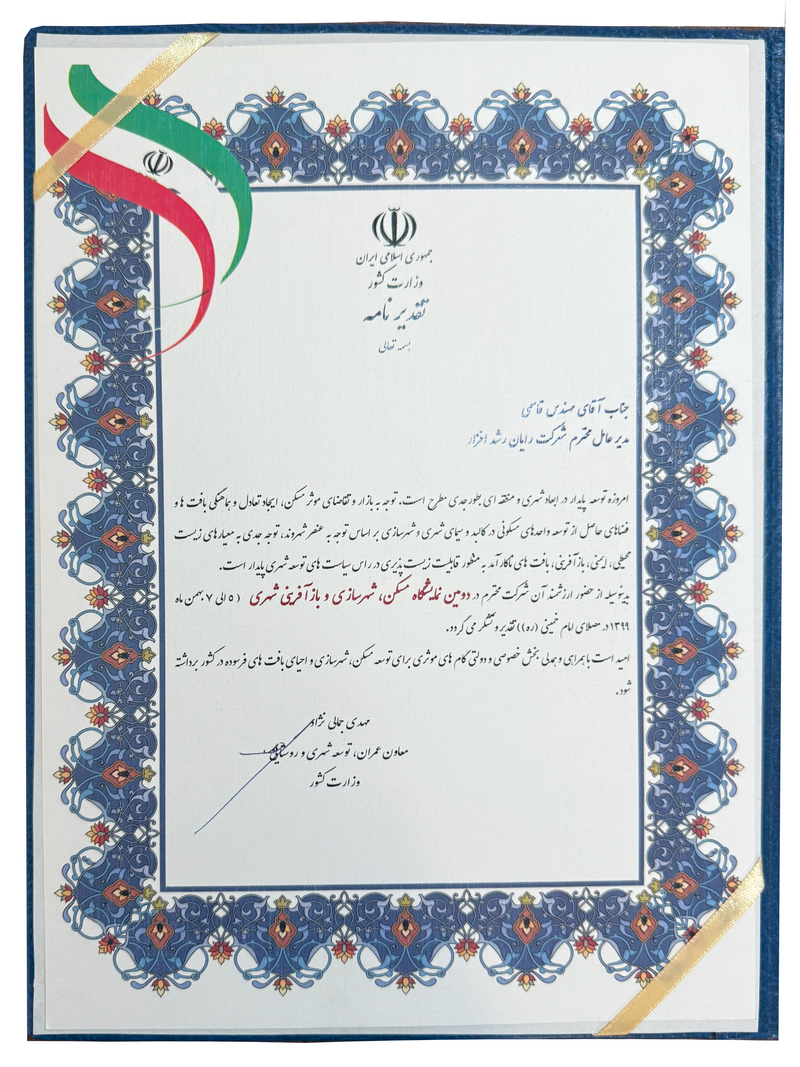 جمهوری اسلامی ایران
وزارت کشور
تقدیر نامه
بسمه تعالی
جناب آقای مهندس قاسمی
مدیر عامل محترم شرکت رایان رشد افزار
امروزه توسعه پایدار در ابعاد شهری و منطقه ای بطور جدی مطرح است. توجه به بازار و تقاضای موثر مسکن، ایجاد تعادل و هماهنگی بافت ها و
فضاهای حاصل از توسعه واحدهای مسکونی در کالبد و سیمای شهری و شهرسازی بر اساس توجه به عنصر شهروند، توجه جدی به معیارهای زیست
محیطی، ایمنی، بازآفرینی، بافت های ناکارآمد به منظور قابلیت زیست پذیری در راس سیاست های توسعه شهری پایدار است.
بدینوسیله از حضور ارزشمند آن شرکت محترم در دومین نمایشگاه مسکن، شهرسازی و بازآفرینی شهری ( ۵ الی ۷ بهمن ماه
۱۳۹۹ در مصلای امام خمینی (ره)) تقدیر و تشکر می گردد.
امید است با همراهی و همدلی بخش خصوصی و دولتی گام های موثری برای توسعه مسکن، شهرسازی و احیای بافت های فرسوده در کشور برداشته
شود.
مهدی جمالی نژاد
معاون عمران، توسعه شهری و روستایی
وزارت کشور